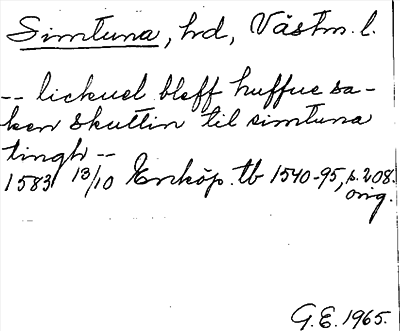 Simtuna, hd, Västm. l.
-- lickuel bleff huffue sa-
ken skuttin til simtuna
tingh --
1583 13/10 Enköp. tb 1540-95, s. 208.
orig.
G.E. 1965.